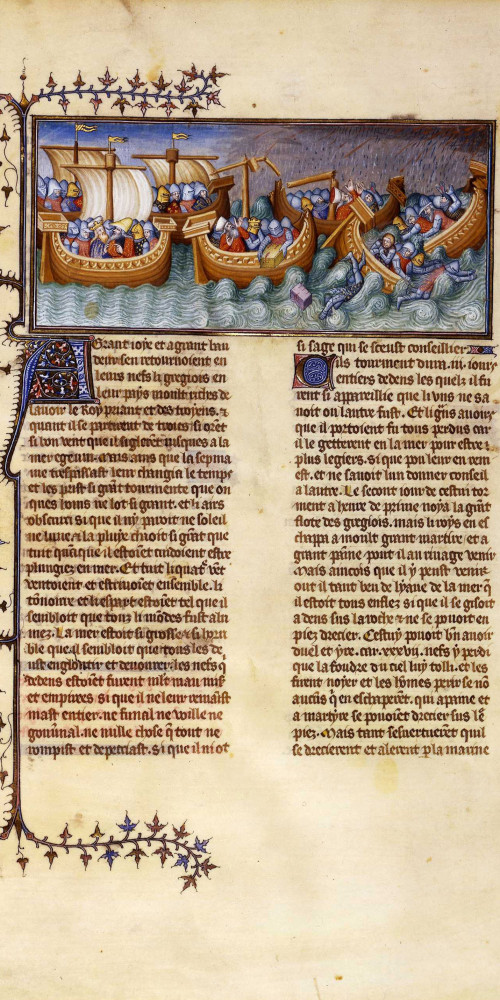 A Grant ioye et a grant bau
deur sen retournoient en
leurs nefs li gregiois en
leur pays moult riches de
lauoir le Roy priant et des troyens. ⁊
quant il se partirent de troies si oret
si bon vent que il siglerent iusques a la
mer egeum. mais ains que la sepma
ine trespassast leur changia le temps
et les prist si grāt tourmente que on
ques homs ne lot si grant. et li airs
obscurci si que il ny paroit ne soleil
ne lune ⁊ la pluye cheoit si grāt que
tuit quāque il estoiēt cuidoient estre
plungiez en mer. Et tuit li quatͬ vēt
ventoient et estriuoiēt ensemble. li
tōnoirre et li espart estoiēt tel que il
sembloit que touz li mōdes fust alu
mez. La mer estoit si grosse ⁊ si horri
ble que il sembloit que tous les de
ust engloutir et deuourer. les nefs q̄
dedens estoiēt furent mlt̄ mau mis
et empires si que il ne leur remaist
mast entier. ne funal ne voille ne
gouuīnal. ne nulle chose q̄ tout ne
rompist et depecast. si que il ni ot
si sage qui se sceust conseillier
Cils tourment dura .iii. iours
entiers dedens les quels il fu
rent si appareillie que li vns ne sa
uoit ou lautre fust. Et li gns auoirs
que il portoient fu tous perdus car
il le getterent en la mer pour estre
plus legiers. si que pou leur en rem
est. et ne sauoit lun donner conseil
a lautre. Le secont iour de cestui tor
ment a heure de prime noya la grāt
flote des gregiois. mais li roys en es
chappa a moult grant martire et a
grant paīne pour il au riuage venir
Mais aincois que il y peust venir
out il tant beu de lyaue de la mer q̄
il estoit tous enflez si que il se gisoit
a dens sus la roche ⁊ ne se pouoit en
piez drecier. Cestuy pouoit bn̄ auoir
duel et yre. car .xxxvii. nefs y perdi
que la foudre du ciel luy tolli. et les
firent noyer et les hōmes perir se nō
aucūs q̄ en eschaperēt. qui a paine et
a martyre se pouoiēt drecier sus les
piez. Mais tant sesuertuerēt quil
se drecierent et alerent p la marine